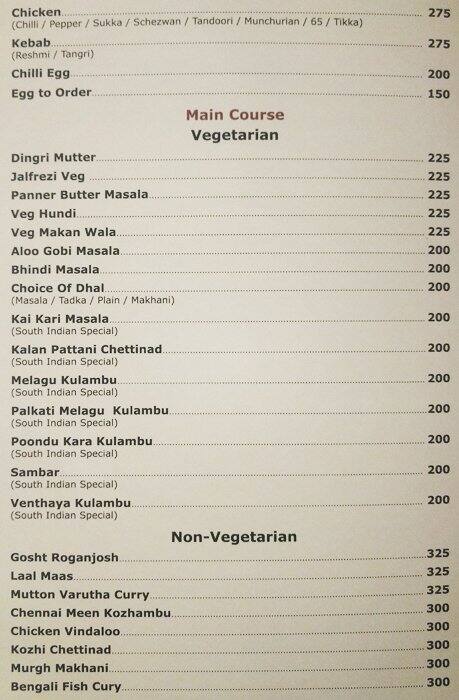 Chicken 275
(Chilli / Pepper / Sukka / Schezwan / Tandoori / Munchurian / 65 / Tikka)
Kebab 275
(Reshmi / Tangri)
Chilli Egg 200
Egg to Order 150
Main Course
Vegetarian
Dingri Mutter 225
Jalfrezi Veg 225
Panner Butter Masala 225
Veg Hundi 225
Veg Makan Wala 225
Aloo Gobi Masala 200
Bhindi Masala 200
Choice Of Dhal 200
(Masala / Tadka / Plain / Makhani)
Kai Kari Masala 200
(South Indian Special)
Kalan Pattani Chettinad 200
(South Indian Special)
Melagu Kulambu 200
(South Indian Special)
Palkati Melagu Kulambu 200
(South Indian Special)
Poondu Kara Kulambu 200
(South Indian Special)
Sambar 200
(South Indian Special)
Venthaya Kulambu 200
(South Indian Special)
Non-Vegetarian
Gosht Roganjosh 325
Laal Maas 325
Mutton Varutha Curry 325
Chennai Meen Kozhambu 300
Chicken Vindaloo 300
Kozhi Chettinad 300
Murgh Makhani 300
Bengali Fish Cury 300